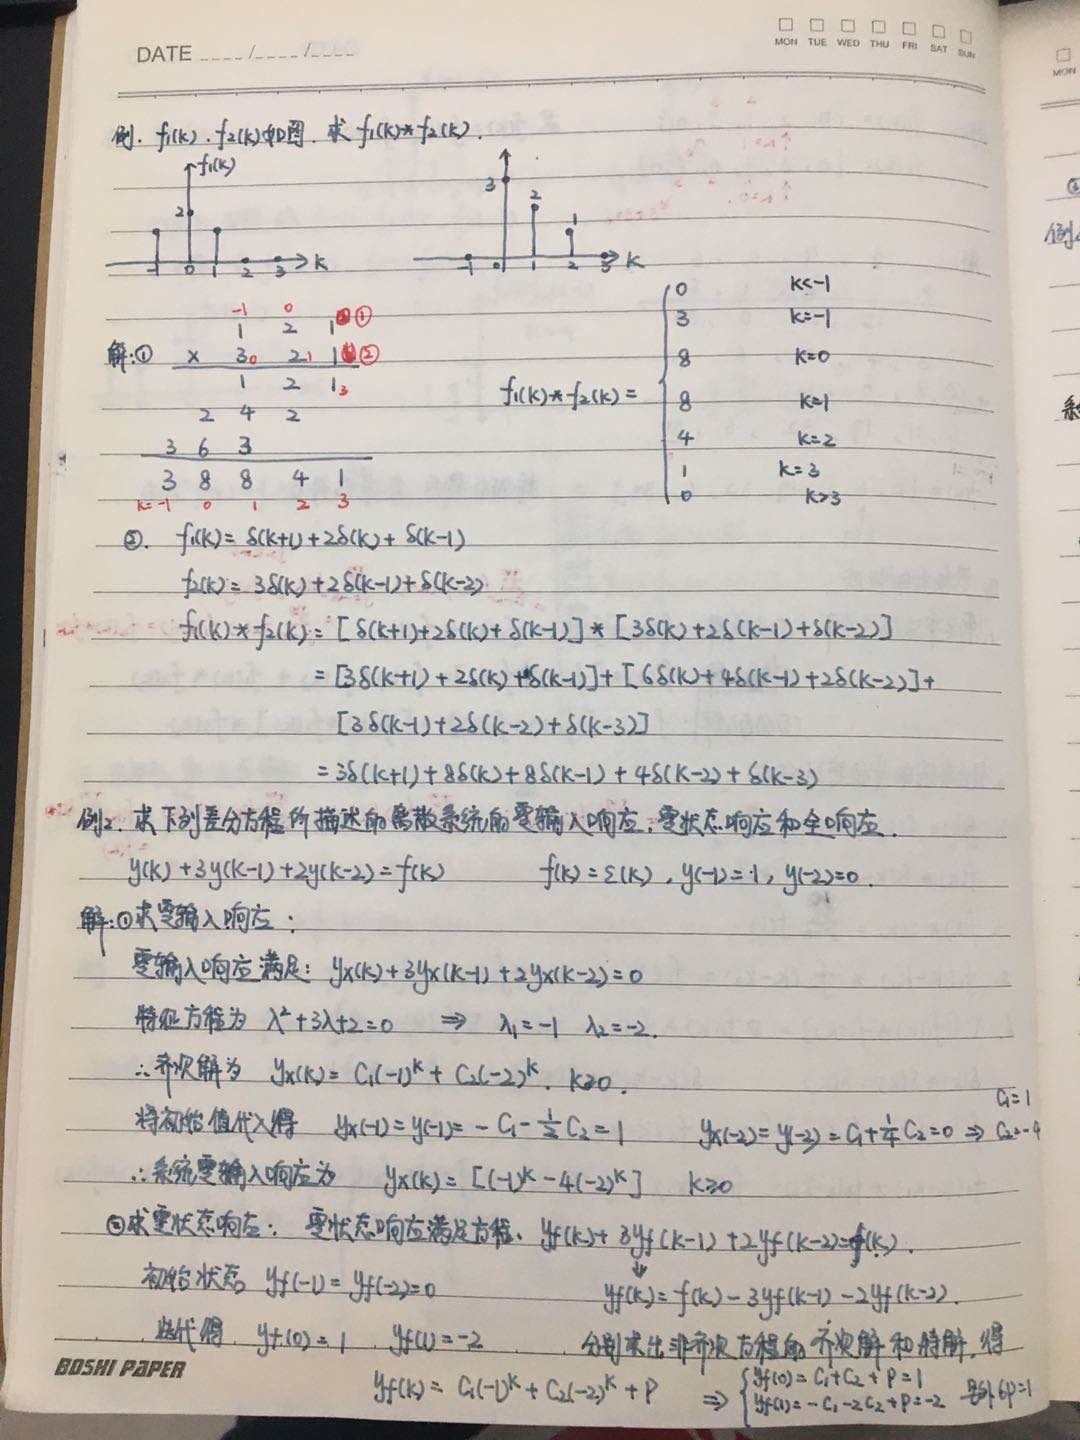 DATE ____/____/____
MON TUE WED THU FRI SAT SUN
MON
例. f₁(k).f₂(k)如图. 求 f₁(k)*f₂(k).
f₁(k)
2
-1 0 1 2 3 k
3 2 1
-1 0 1 2 3 k
-1 0
1 2 1 ①
解:① × 3₀ 2₁ 1 ②
1 2 1₃
2 4 2
3 6 3
3 8 8 4 1
k=-1 0 1 2 3
f₁(k)*f₂(k)=
0 k<-1
3 k=-1
8 k=0
8 k=1
4 k=2
1 k=3
0 k>3
②. f₁(k)= δ(k+1)+2δ(k)+δ(k-1)
f₂(k)= 3δ(k)+2δ(k-1)+δ(k-2)
f₁(k)*f₂(k)= [δ(k+1)+2δ(k)+δ(k-1)]*[3δ(k)+2δ(k-1)+δ(k-2)]
= [3δ(k+1)+2δ(k)+δ(k-1)]+[6δ(k)+4δ(k-1)+2δ(k-2)]+
[3δ(k-1)+2δ(k-2)+δ(k-3)]
=3δ(k+1)+8δ(k)+8δ(k-1)+4δ(k-2)+δ(k-3)
例2. 求下列差分方程所描述的离散系统的零输入响应、零状态响应和全响应.
y(k)+3y(k-1)+2y(k-2)=f(k) f(k)=ε(k), y(-1)=1, y(-2)=0.
解:①求零输入响应:
零输入响应满足: yx(k)+3yx(k-1)+2yx(k-2)=0
特征方程为 λ²+3λ+2=0 ⇒ λ₁=-1 λ₂=-2.
∴齐次解为 yx(k)= C₁(-1)^k + C₂(-2)^k. k≥0.
将初始值代入得 yx(-1)=y(-1)= -C₁-½C₂=1 yx(-2)=y(-2)=C₁+¼C₂=0 ⇒ C₁=1 C₂=-4
∴系统零输入响应为 yx(k)= [(-1)^k-4(-2)^k] k≥0
②求零状态响应: 零状态响应满足方程. yf(k)+3yf(k-1)+2yf(k-2)=f(k).
初始状态 yf(-1)=yf(-2)=0 yf(k)=f(k)-3yf(k-1)-2yf(k-2).
迭代得. yf(0)=1 yf(1)=-2 分别求出非齐次方程的齐次解和特解, 得
yf(k)= C₁(-1)^k + C₂(-2)^k + P ⇒ { yf(0)=C₁+C₂+P=1
yf(1)=-C₁-2C₂+P=-2 另外6P=1
BOSHI PAPER
例